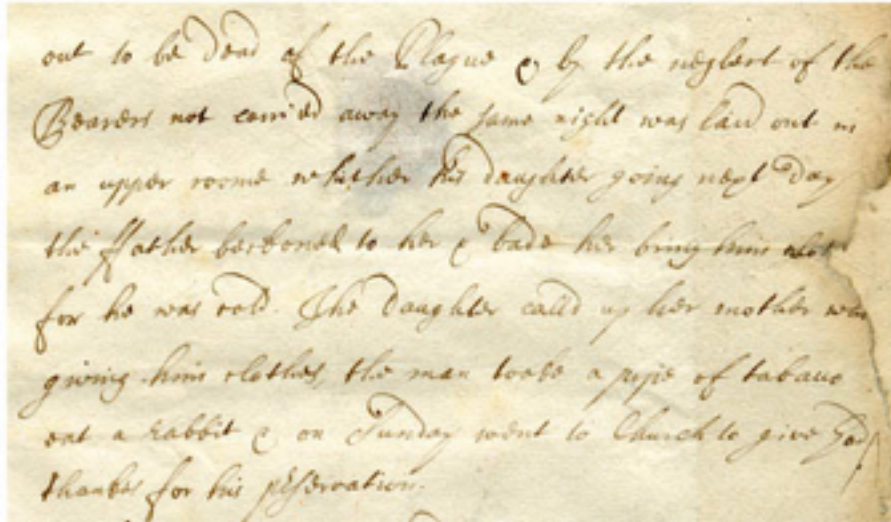 out to be dead of the Plague & by the neglect of the
Bearers not carried away the same night was laid out in
an upper roome whither his daughter going next day
the ffather beckoned to her & bade her bring him
for he was cold. The daughter calld up her mother
giving him clothes, the man tooke a pipe of tabaco
eat a Rabbit & on Sunday went to Church to give God
thankes for his pseservation.